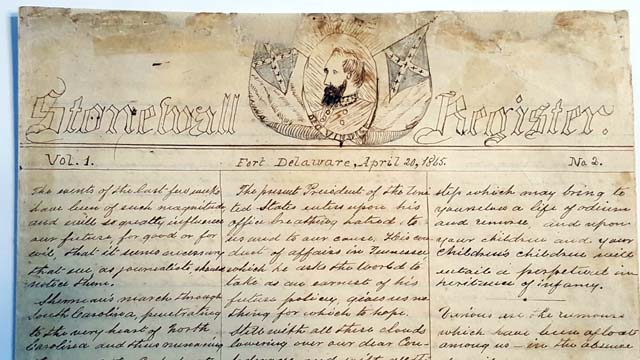 Stonewall Register.
Vol. 1.
Fort Delaware, April 20, 1865.
No. 2.
The events of the last few weeks
have been of such magnitude
and will so greatly influence
our future, for good or for
evil, that it seems necessary
that we, as journalists, should
notice them.
Sherman's march through
South Carolina, penetrating
to the very heart of North
Carolina and thus
The present President of the Uni-
ted States enters upon his
office breathing hatred to
us and to our cause. His con-
duct of affairs in Tennessee
which he asks the World to
take as an earnest of his
future policy, gives us no-
thing for which to hope.
Still with all these clouds
lowering over our dear Con-
step which may bring to
yourselves a life of odium
and remorse, and upon
your children and your
children's children will
entail a perpetual in-
heritance of infamy.
Various are the rumours
which have been afloat
among us — in the absence